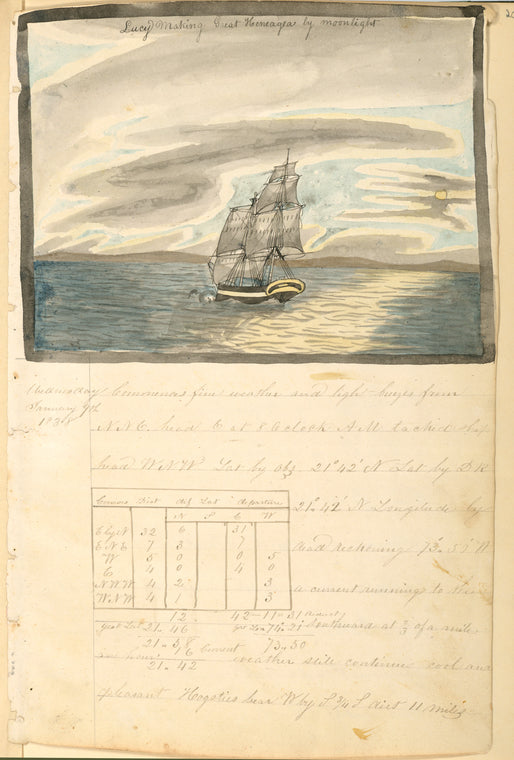 Lucy Making Great Heneagea by moonlight
Wednesday Commences fine weather and light
January 9th
N.N.E. head E at 8 Oclock A.M. tacked
head W.N.W. Lat by obs 21° 42' N Lat by D R
21° 42' N Longitude by
dead reckoning 73° 51' W
a current running to the
Southward at 2/3 of a mile
weather still continues cool and
pleasant Hogsties bear W by S 3/4 S dist 11 miles
Courses Dist dif Lat departure
N S E W
E by N 32 6 31
E N E 7 3 7
W 5 0 0 5
E 4 0 4 0
N W W 4 2 3
W.N.W 4 1 3
12 42 11 31
Lat 21 46
21 58 73 50
6 Current
21 42